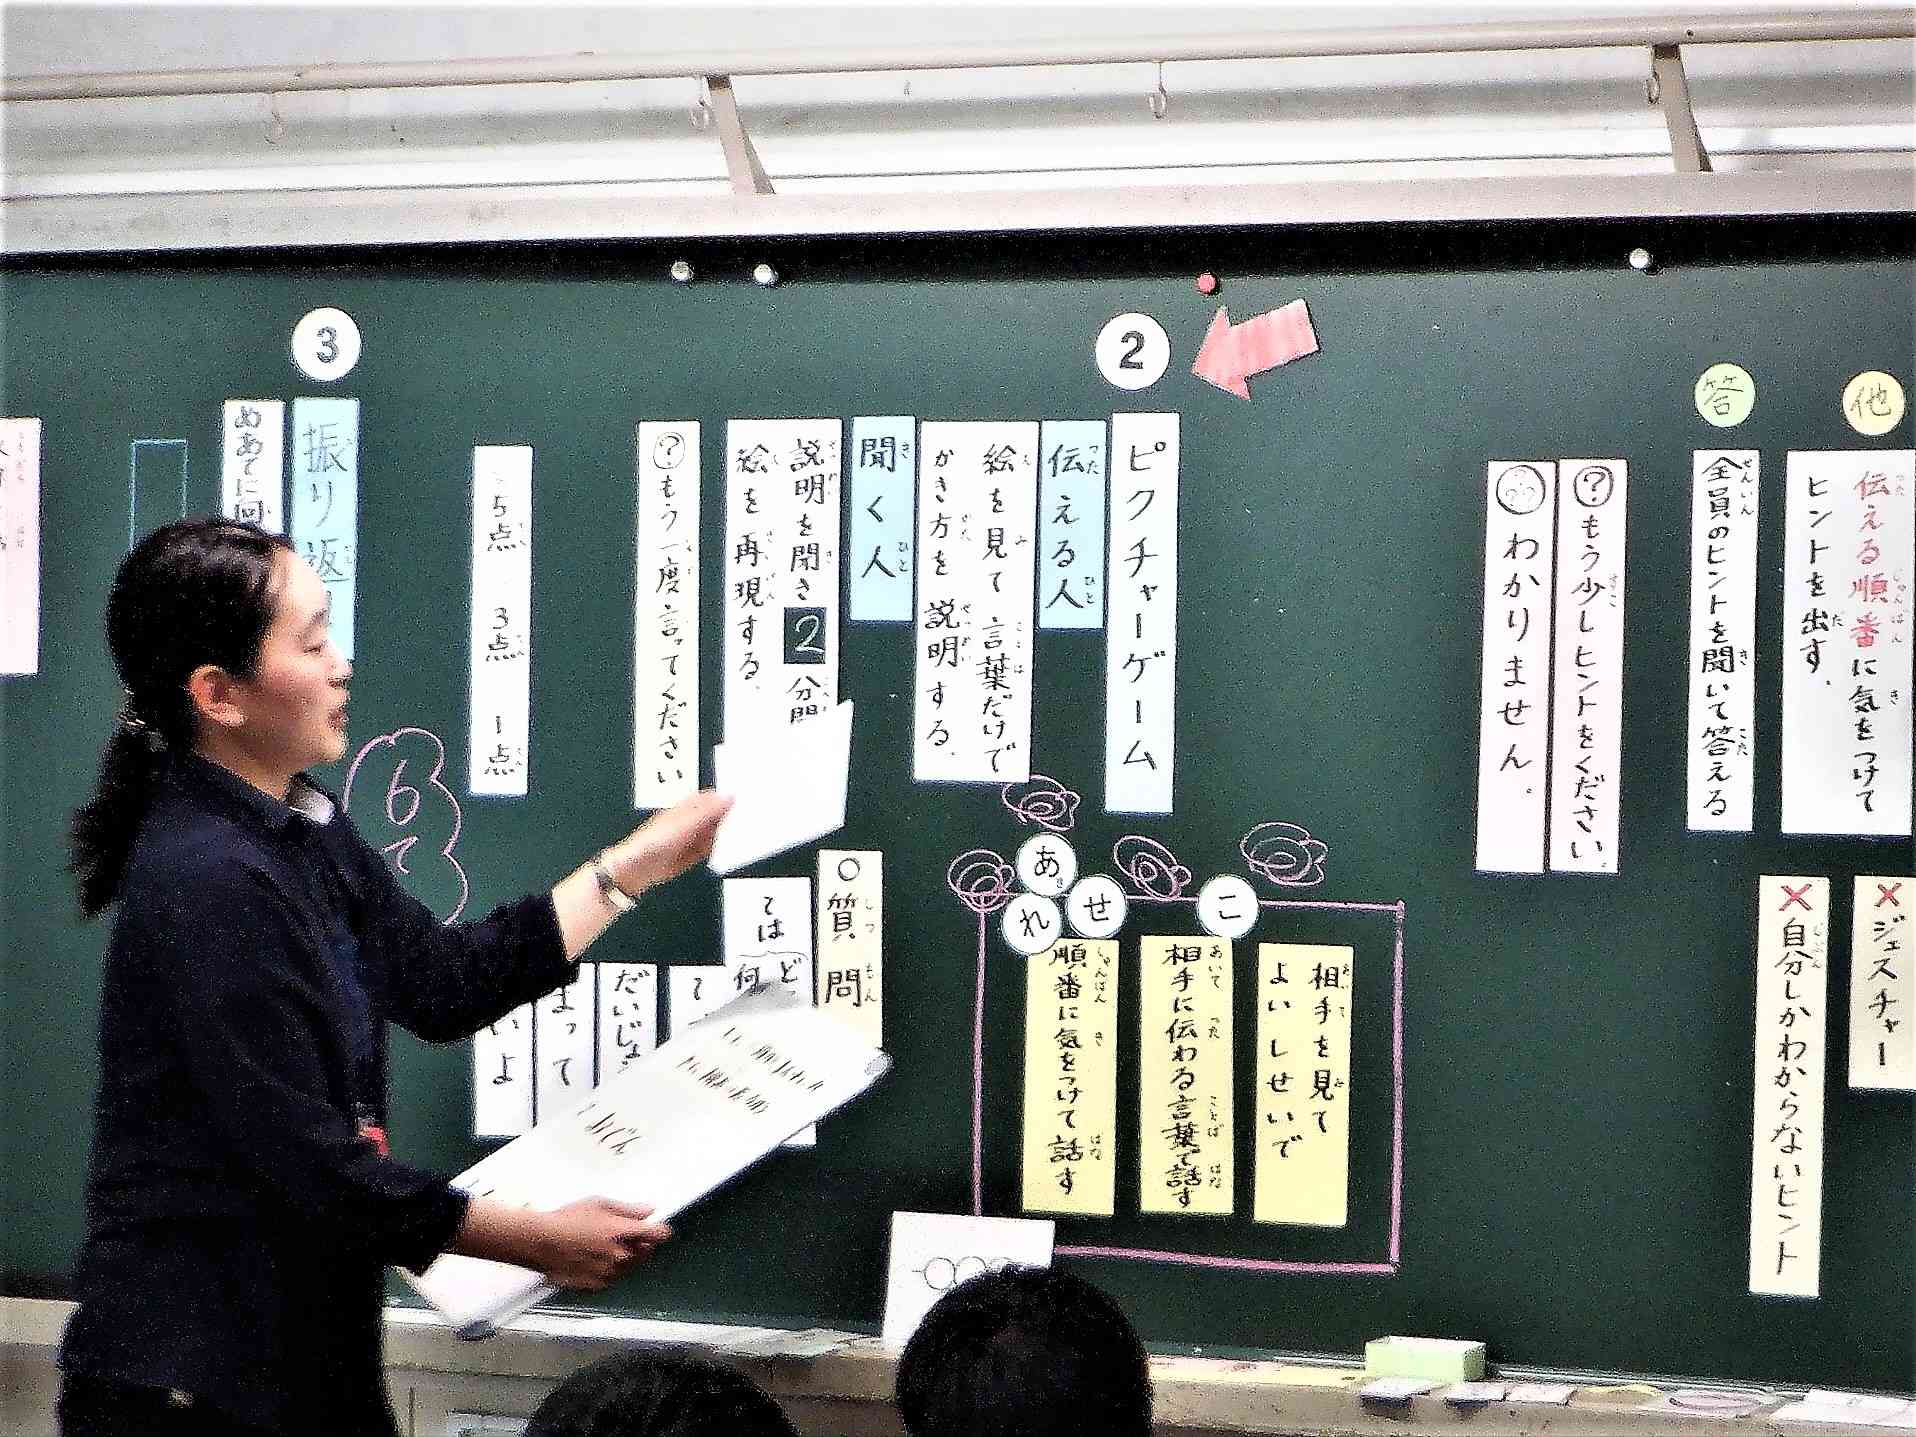 他
伝える順番に気をつけて
ヒントを出す。
×ジェスチャー
答
全員のヒントを聞いて答える
×自分しかわからないヒント
?もう少しヒントをください。
わかりません。
2
ピクチャーゲーム
伝える人
絵を見て言葉だけで
かき方を説明する。
聞く人
説明を聞き2分間
絵を再現する。
?もう一度言ってください
5点 3点 1点
こ
相手を見て
よいしせいで
せ
相手に伝わる言葉で話す
あ
れ
順番に気をつけて話す
○質問
3
振り返
めあてに